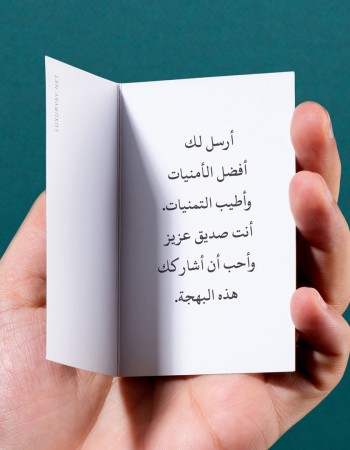 أرسل لك
أفضل الأمنيات
وأطيب التمنيات.
أنت صديق عزيز
وأحب أن أشاركك
هذه البهجة.
LUXURYAY.NET